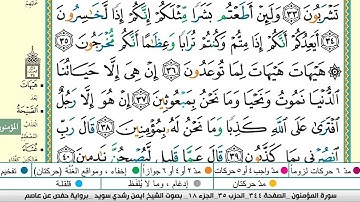 تَشْرَبُونَ ٣٣ وَلَئِنْ أَطَعْتُم بَشَرًا مِّثْلَكُمْ إِنَّكُمْ إِذًا لَّخَٰسِرُونَ
٣٤ أَيَعِدُكُمْ أَنَّكُمْ إِذَا مِتُّمْ وَكُنتُمْ تُرَابًا وَعِظَٰمًا أَنَّكُم مُّخْرَجُونَ
٣٥ هَيْهَاتَ هَيْهَاتَ لِمَا تُوعَدُونَ ٣٦ إِنْ هِىَ إِلَّا حَيَاتُنَا
ٱلدُّنْيَا نَمُوتُ وَنَحْيَا وَمَا نَحْنُ بِمَبْعُوثِينَ ٣٧ إِنْ هُوَ إِلَّا رَجُلٌ
ٱفْتَرَىٰ عَلَى ٱللَّهِ كَذِبًا وَمَا نَحْنُ لَهُۥ بِمُؤْمِنِينَ ٣٨ قَالَ رَبِّ
ٱنصُرْنِى بِمَا كَذَّبُونِ ٣٩ قَالَ عَمَّا قَلِيلٍ لَّيُصْبِحُنَّ نَٰدِمِينَ ٤٠
هَيْهَاتَ
الصَّيْحَةُ
المؤمنون
مدّ ٦ حركات لزوماً مدّ ٢ أو ٤ أو ٦ جوازاً إخفاء، ومواقع الغُنَّة (حركتان) تفخيم
مدّ واجب ٤ أو ٥ حركات مدّ حركتان إدغام، وما لا يُلفَظ قلقلة
سورة المؤمنون . الصفحة ٣٤٤ . الحزب ٣٥ . الجزء ١٨ . بصوت الشيخ ايمن رشدي سويد . برواية حفص عن عاصم